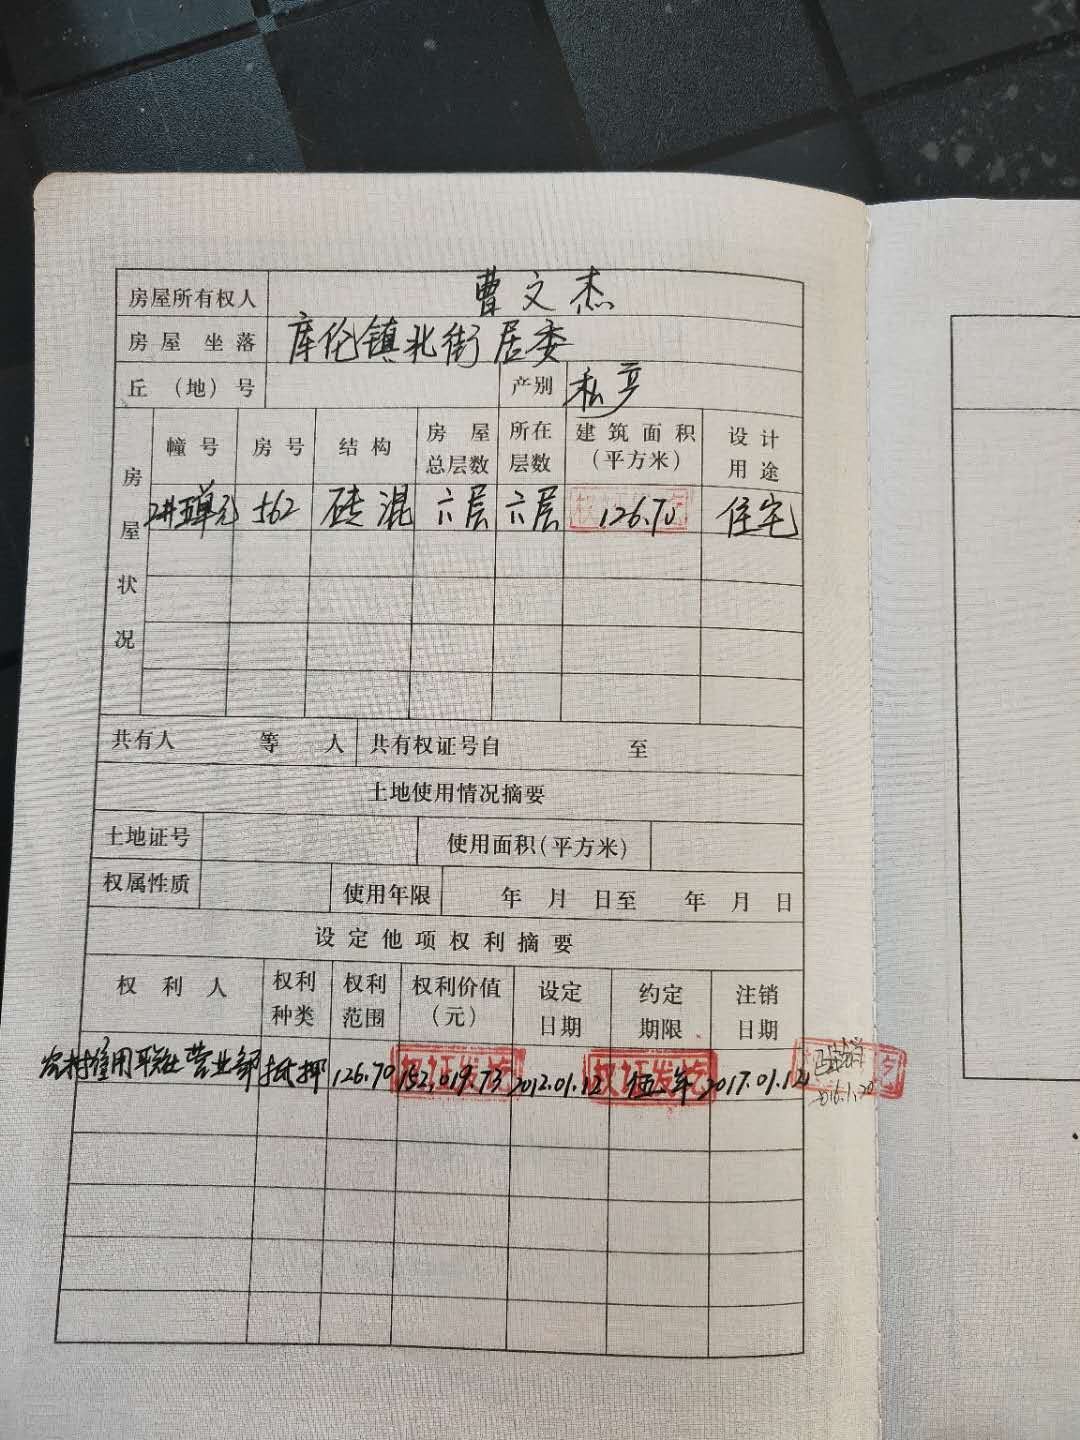 房屋所有权人 曹文杰
房屋坐落 库伦镇北街居委
丘（地）号 产别 私产
房屋状况
幢号 房号 结构 房屋总层数 所在层数 建筑面积（平方米） 设计用途
2#五单元 562 砖混 六层 六层 126.70 住宅
共有人 等 人 共有权证号自 至
土地使用情况摘要
土地证号 使用面积(平方米)
权属性质 使用年限 年 月 日至 年 月 日
设定他项权利摘要
权利人 权利种类 权利范围 权利价值（元） 设定日期 约定期限 注销日期
农村信用联社营业部 抵押 126.70 152,019.73 2012.01.12 伍年 2017.01.12
权证发 权证发
2016.1.20